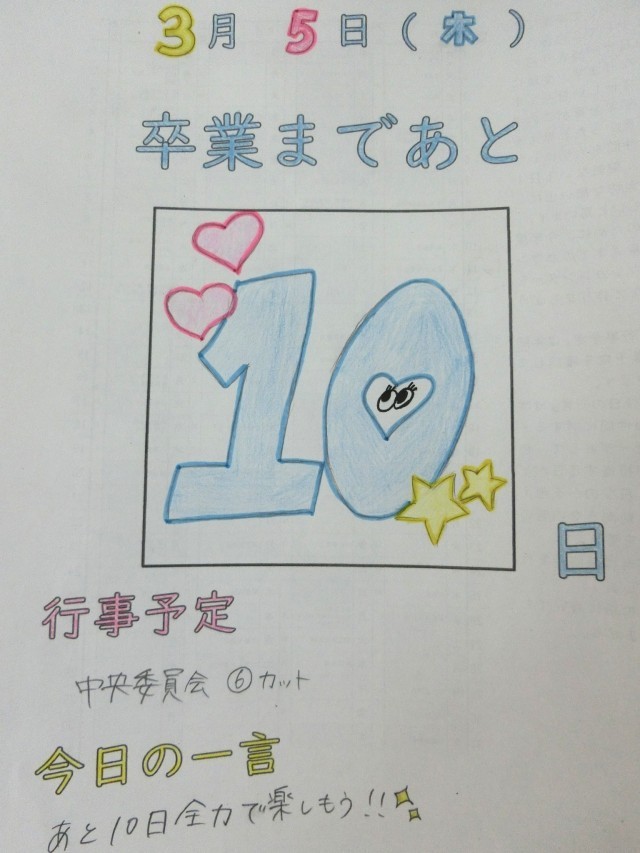 3月 5日(木)
卒業まであと
10
日
行事予定
中央委員会 ⑥カット
今日の一言
あと10日全力で楽しもう!!